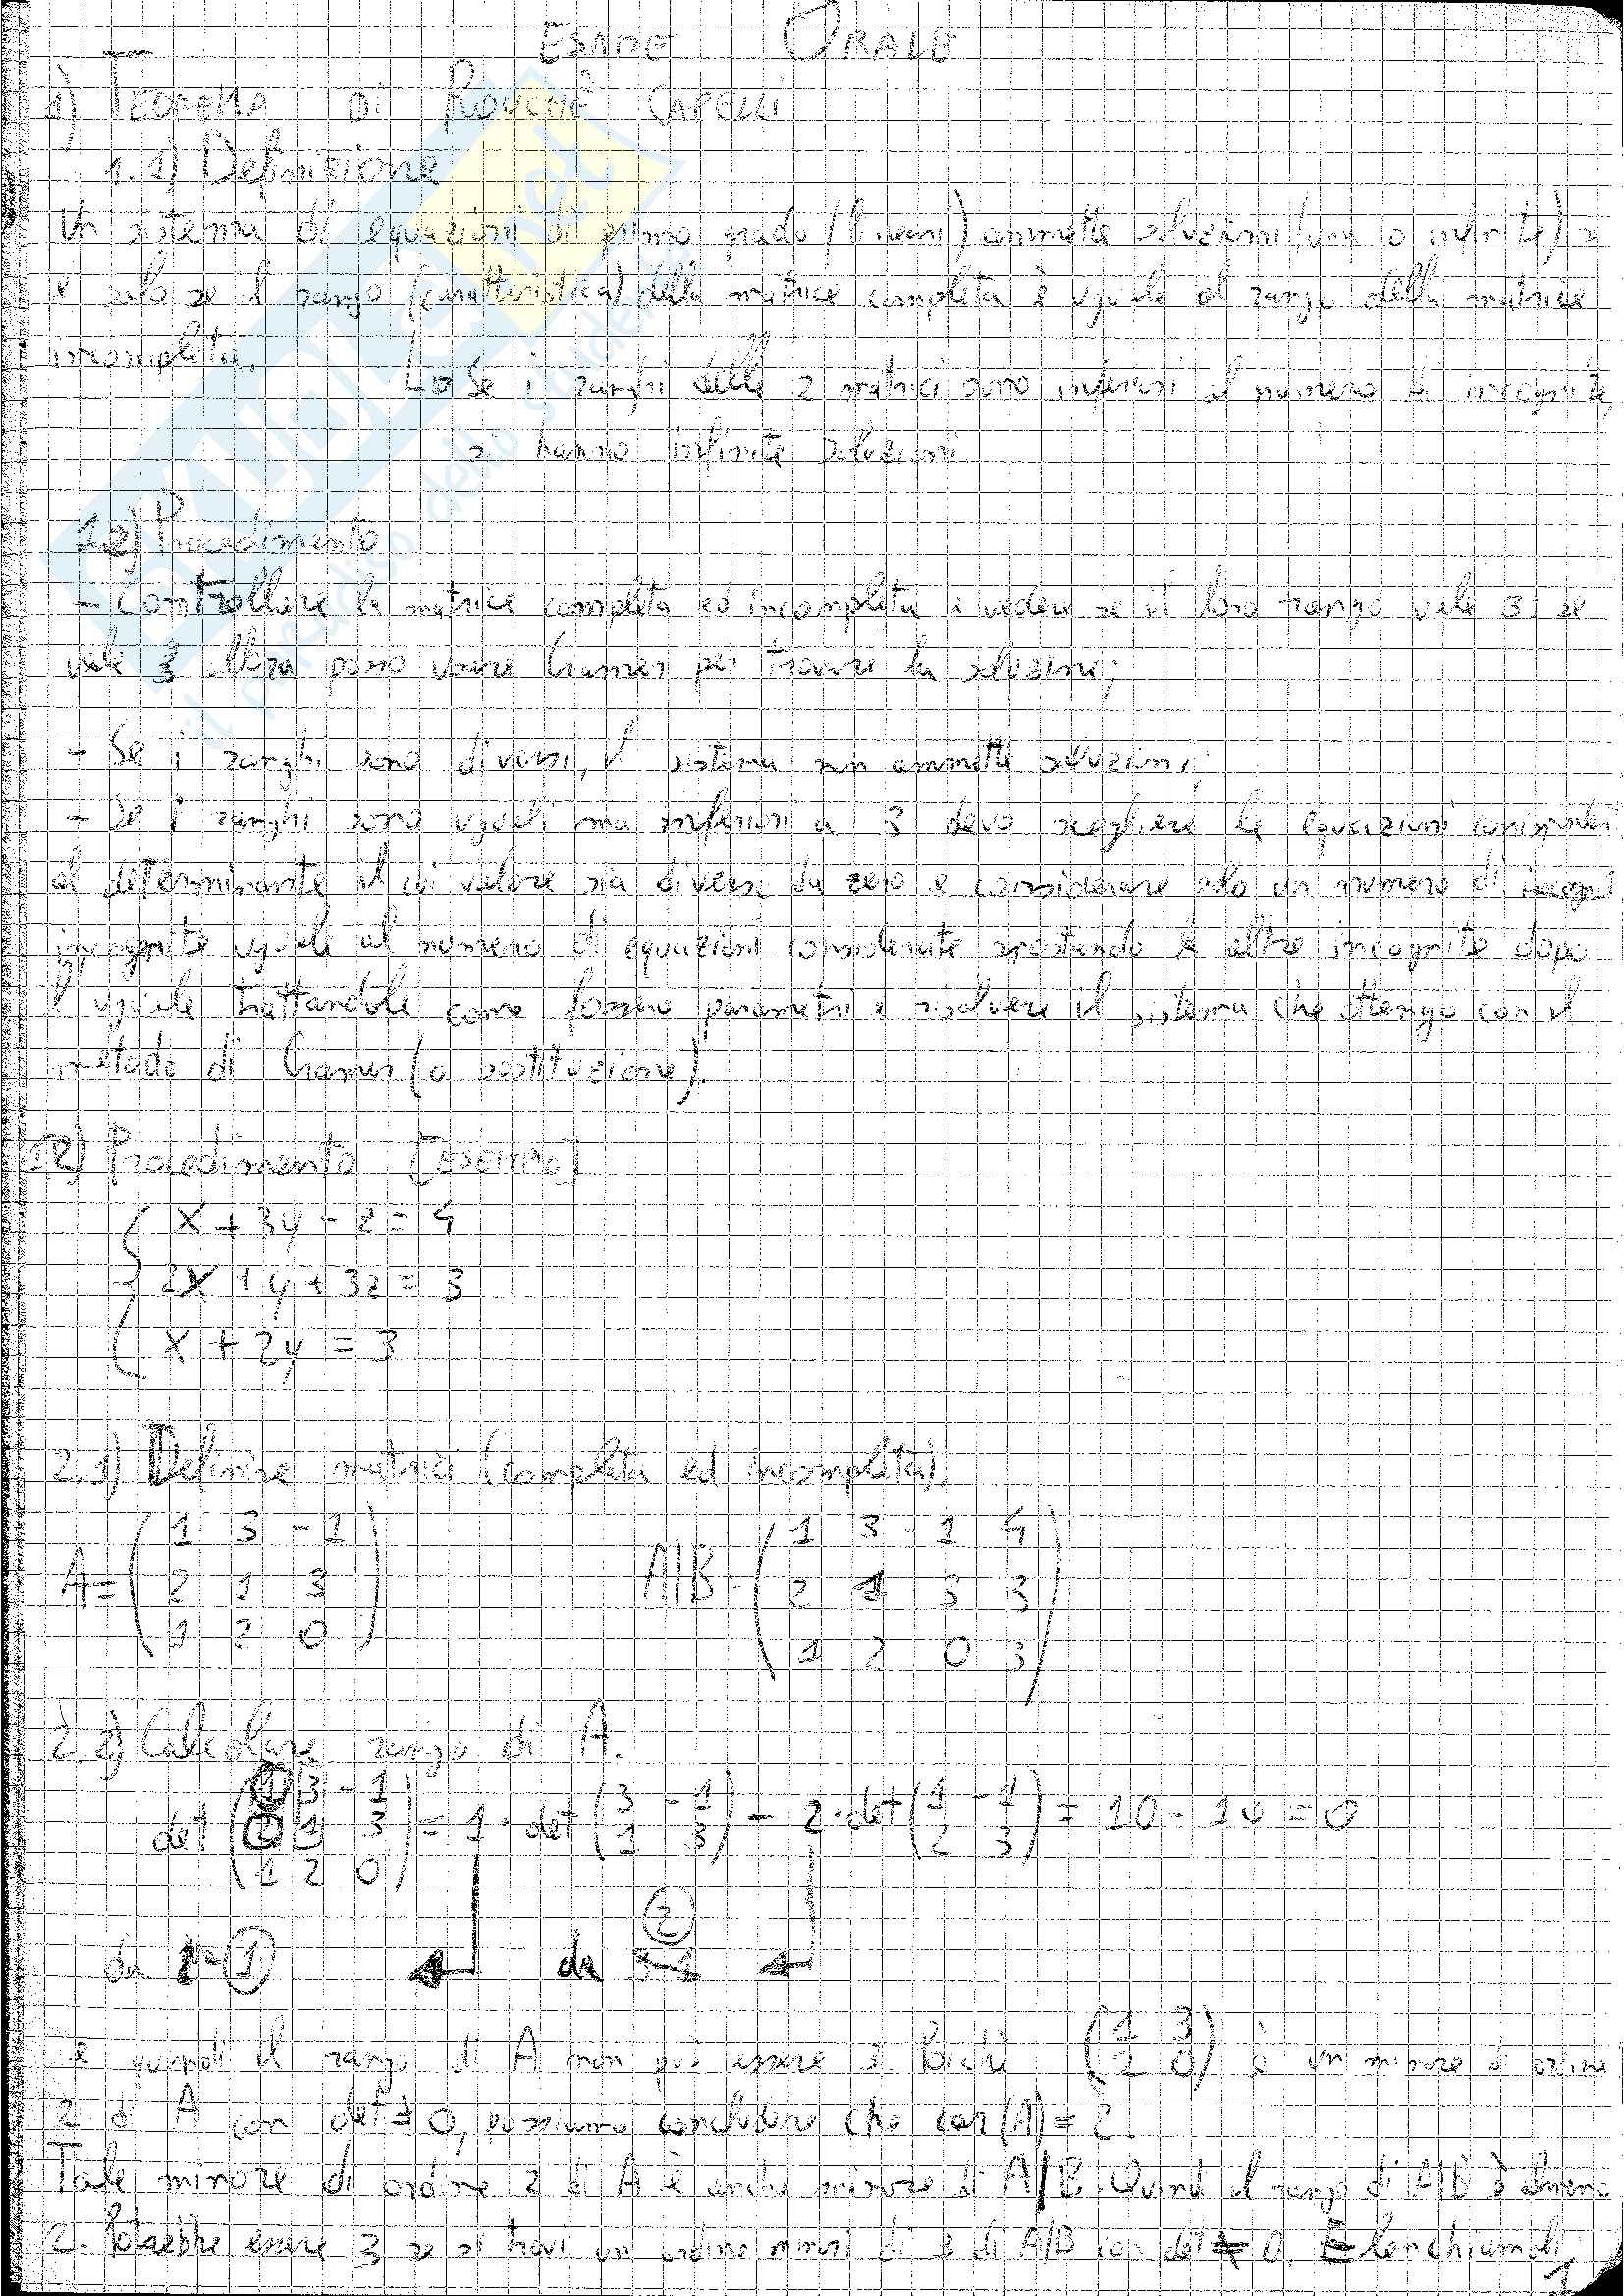 ESAME ORALE
1) TEOREMA DI ROUCHÉ CAPELLI
1.1) Definizione
Un sistema di equazioni di primo grado (lineari) ammette soluzioni (una o infinite) se
e solo se il rango (caratteristica) della matrice completa è uguale al rango della matrice
incompleta.
Se i ranghi delle 2 matrici sono inferiori al numero di incognite,
si hanno infinite soluzioni
1.2) Procedimento
- Controllare la matrice completa ed incompleta e vedere se il loro rango vale 3, se
vale 3 allora posso usare Cramer per trovare la soluzione;
- Se i ranghi sono diversi, il sistema non ammette soluzioni;
- Se i ranghi sono uguali ma inferiori a 3 devo scegliere le equazioni
al determinante il cui valore sia diverso da zero e considerare solo un numero di
incognite uguale al numero di equazioni considerate spostando le altre incognite dopo
l'uguale trattandole come fossero parametri e risolvere il sistema che ottengo con il
metodo di Cramer (o sostituzione).
12) Procedimento [ESEMPIO]
x + 3y - z = 4
2x + y + 3z = 3
x + 2y = 3
2.1) Definire matrici (completa ed incompleta).
A = ( 1 3 -1 A|B = ( 1 3 1 4
2 1 3 2 1 3 3
1 2 0 ) 1 2 0 3 )
2.2) Calcolare rango di A.
det ( 1 3 -1 2 1 3 1 2 0 ) = 1 · det ( 3 -1 1 3 ) - 2 · det ( 1 -1 2 3 ) = 10 - 10 = 0
2
da 1 da
e quindi il rango di A non può essere 3. Poiché ( 1 3 2 0 ) è un minore di ordine
2 di A con det ≠ 0, possiamo concludere che car(A) = 2.
Tale minore di ordine 2 di A è anche minore di A|B. Quindi il rango di A|B è almeno
2. Potrebbe essere 3 se si trovi un ordine minori di 3 di A|B con det ≠ 0. Elenchiamoli
1